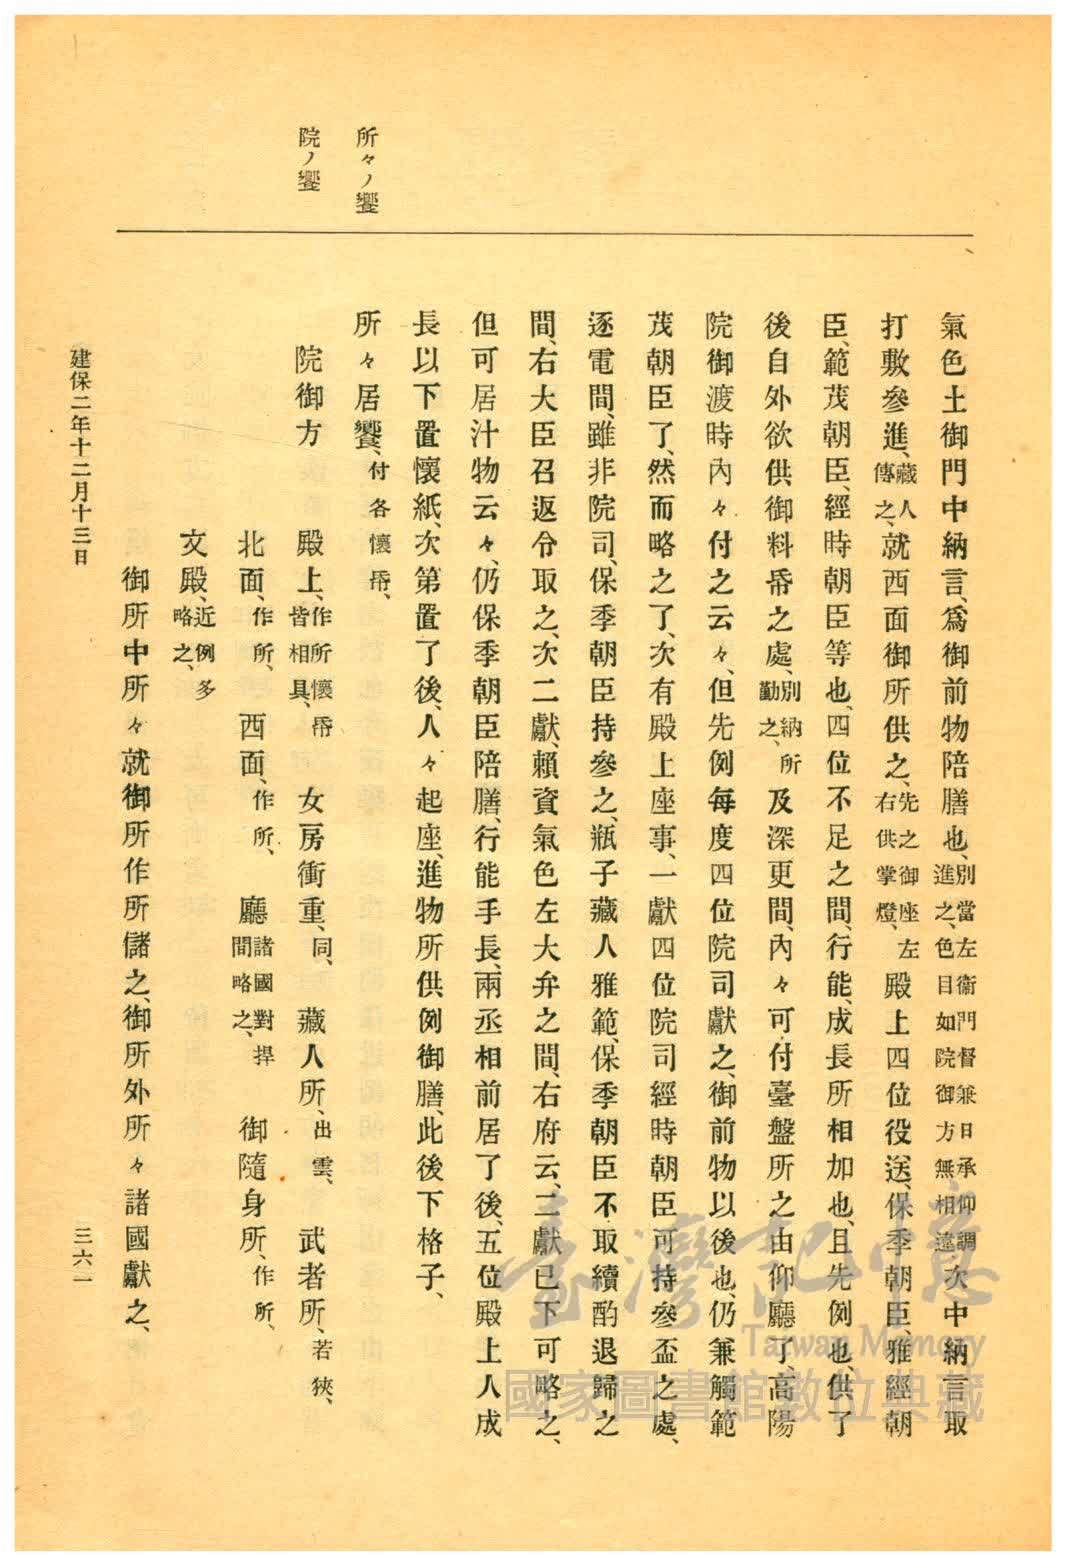 所々ノ饗
院ノ饗
氣色土御門中納言、爲御前物陪膳也、別當左衞門督兼日承仰調進之、色目如院御方無相違、次中納言取
打敷參進、藏人傳之、就西面御所供之、先之御座左右供掌燈、殿上四位役送、保季朝臣、雅經朝
臣、範茂朝臣、經時朝臣等也、四位不足之間、行能、成長所相加也、且先例也、供了
後自外欲供御料帋之處、別納所勤之、及深更間、內々可付臺盤所之由仰廳了、高陽
院御渡時內々付之云々、但先例每度四位院司獻之、御前物以後也、仍兼觸範
茂朝臣了、然而略之了、次有殿上座事、一獻四位院司經時朝臣可持參盃之處、
逐電間、雖非院司、保季朝臣持參之、瓶子藏人雅範、保季朝臣不取續酌退歸之
間、右大臣召返令取之、次二獻、賴資氣色左大弁之間、右府云、二獻已下可略之、
但可居汁物云々、仍保季朝臣陪膳、行能手長、兩丞相前居了後、五位殿上人成
長以下置懷紙、次第置了後、人々起座、進物所供例御膳、此後下格子、
所々居饗、付各懷帋、
院御方
殿上、作所懷帋皆相具、 女房衝重、同、 藏人所、出雲、 武者所、若狹、
北面、作所、 西面、作所、 廳諸國對捍間略之、 御隨身所、作所、
文殿、近例多略之、
御所中所々就御所作所儲之、御所外所々諸國獻之、
建保二年十二月十三日
三六一
臺灣記憶
Taiwan Memory
國家圖書館數位典藏